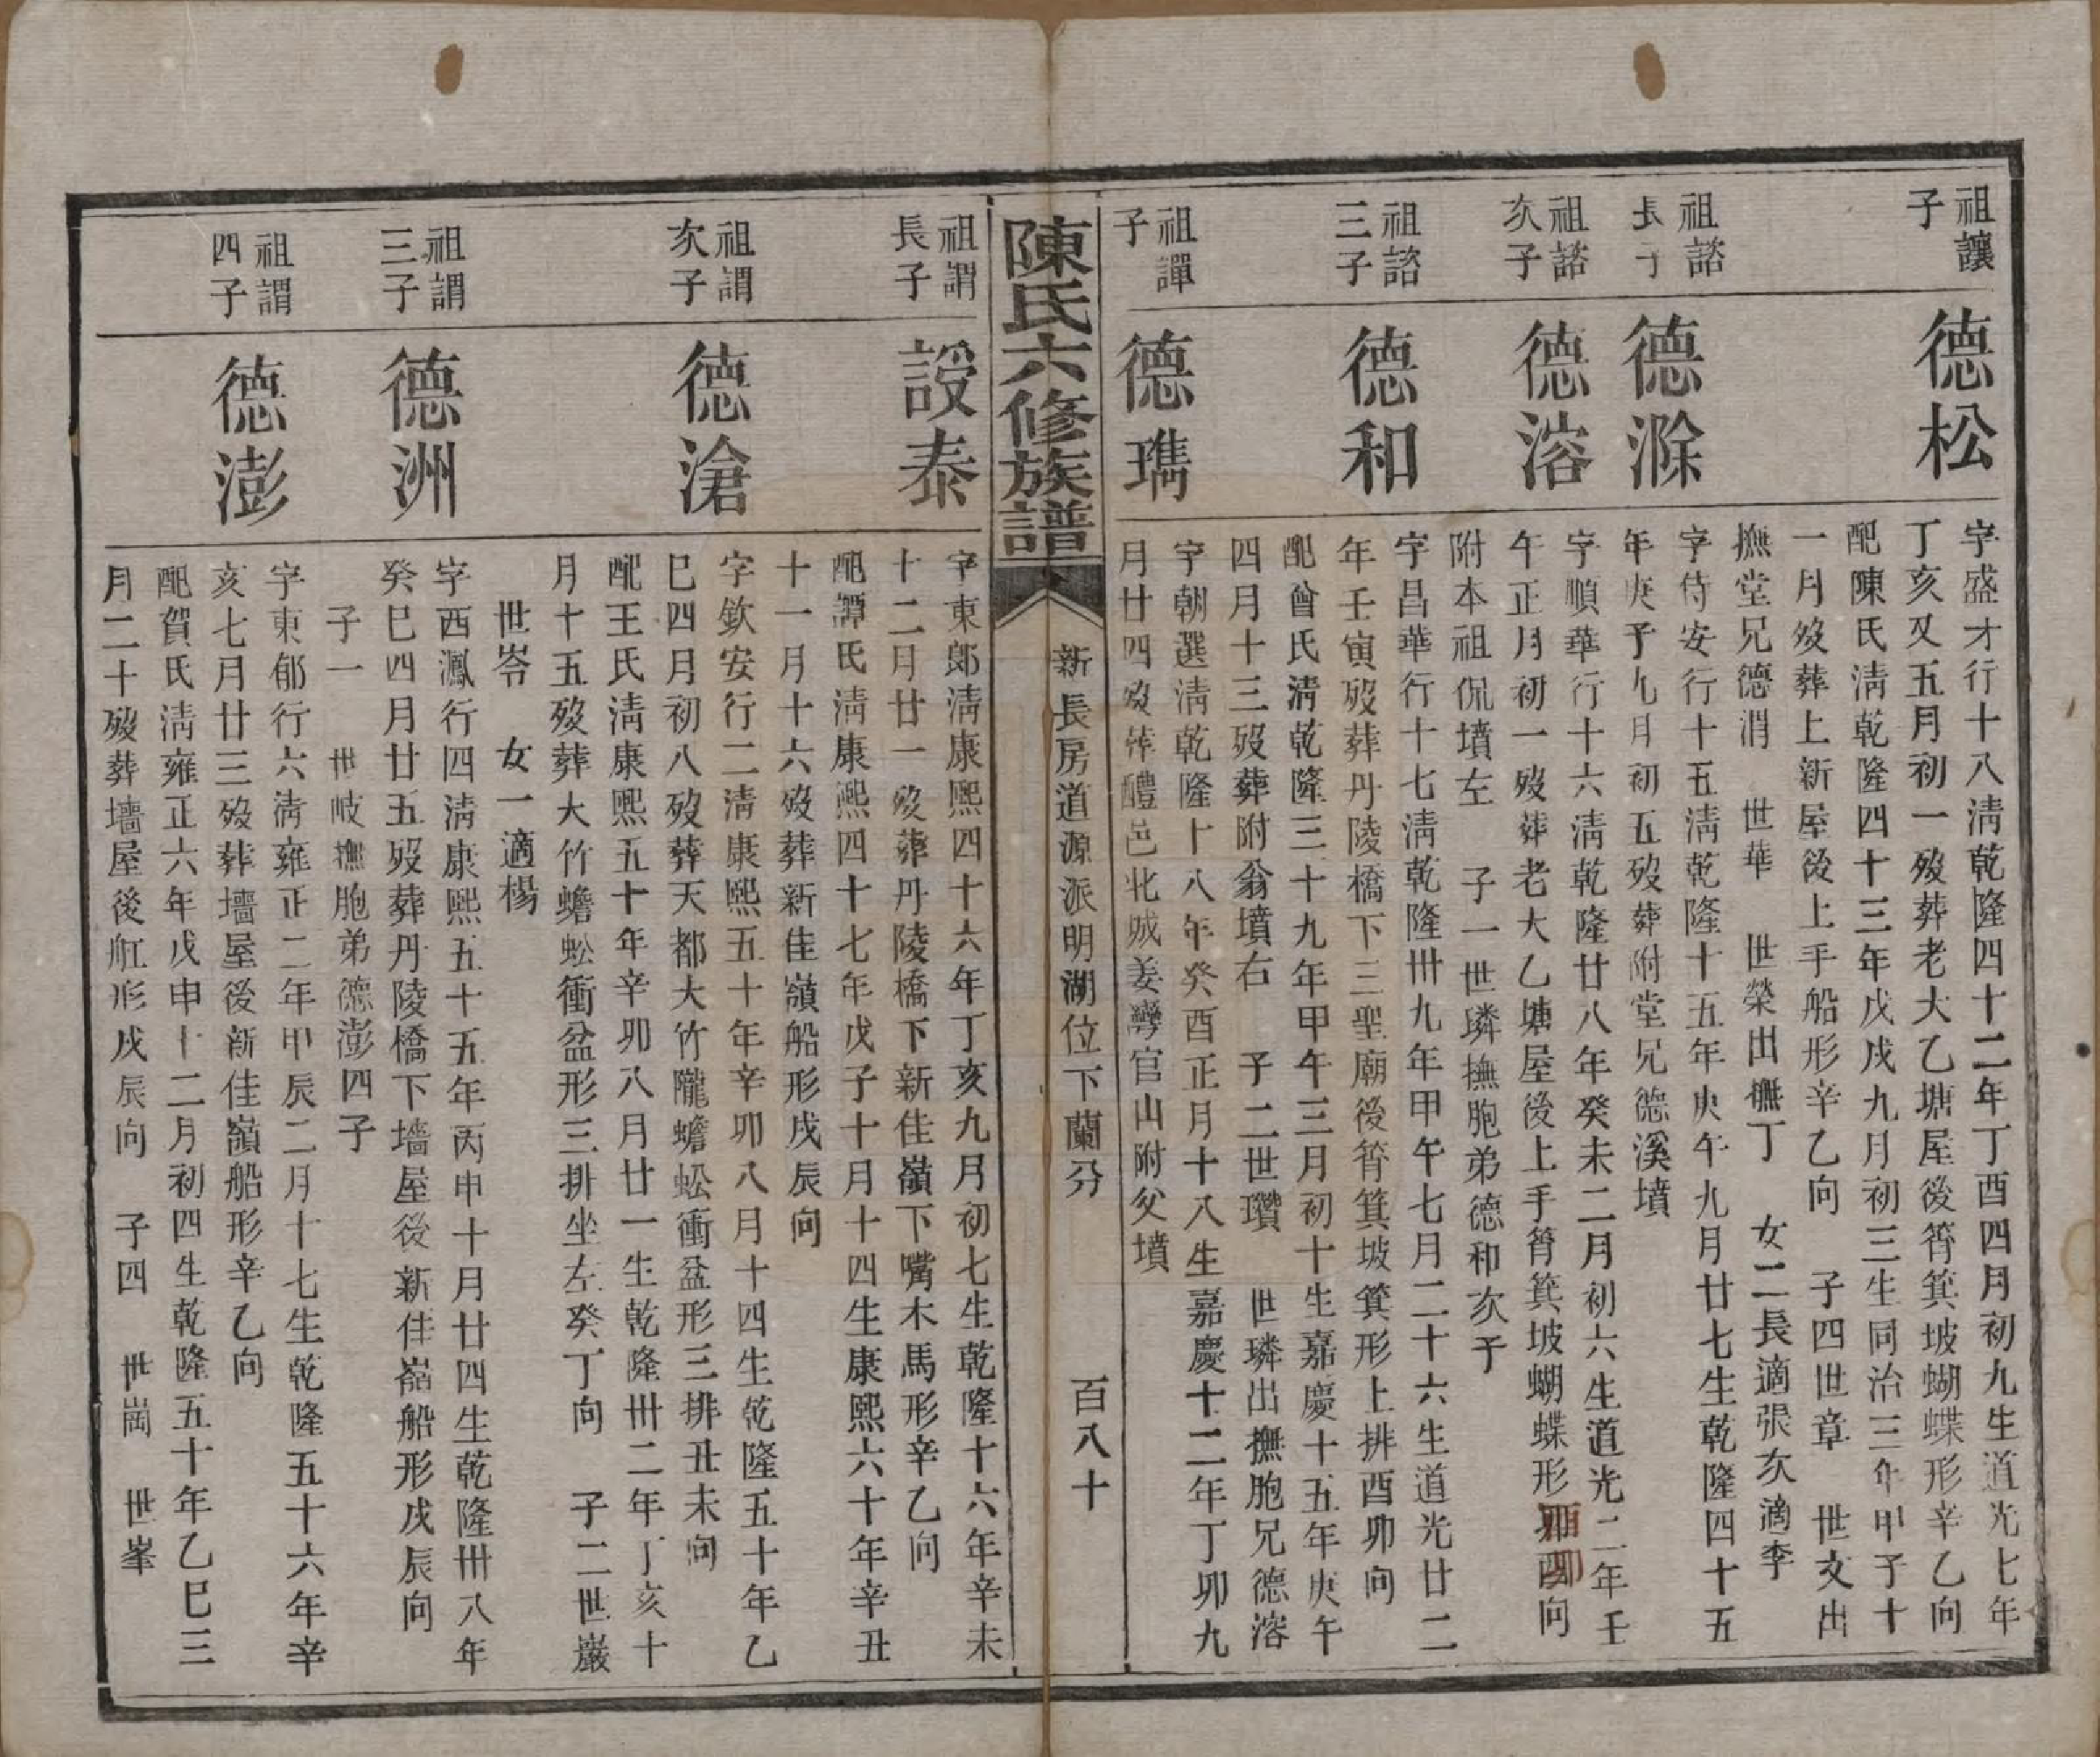 祖讓
子
德松
字盛才行十八淸乾隆四十二年丁酉四月初九生道光七年
丁亥又五月初一歿葬老大乙塘屋後筲箕坡蝴蝶形辛乙向
配陳氏淸乾隆四十三年戊戌九月初三生同治三年甲子十
一月歿葬上新屋後上手船形辛乙向　子四世章　世文出
撫堂兄德㳙　世華　世榮出撫丁　女二長適張次適李
祖諮
長子
德滁
字侍安行十五淸乾隆十五年庚午九月廿七生乾隆四十五
年庚子九月初五歿葬附堂兄德溪墳
祖諮
次子
德溶
字順華行十六淸乾隆廿八年癸未二月初六生道光二年壬
午正月初一歿葬老大乙塘屋後上手筲箕坡蝴蝶形酉卯向
附本祖侃墳左　子一世璘撫胞弟德和次子
祖諮
三子
德和
字昌華行十七淸乾隆卅九年甲午七月二十六生道光廿二
年壬寅歿葬丹陵橋下三聖廟後筲箕坡箕形上排酉卯向
配曾氏淸乾隆三十九年甲午三月初十生嘉慶十五年庚午
四月十三歿葬附翁墳右　子二世瓚　世璘出撫胞兄德溶
祖譂
子
德㻽
字朝選淸乾隆十八年癸酉正月十八生嘉慶十二年丁卯九
月廿四歿葬醴邑北城姜灣官山附父墳
陳氏六修族譜
新長房道源派明湖位下蘭分
百八十
祖謂
長子
設泰
字東郞淸康熙四十六年丁亥九月初七生乾隆十六年辛未
十二月廿一歿葬丹陵橋下新佳嶺下嘴木馬形辛乙向
配譚氏淸康熙四十七年戊子十月十四生康熙六十年辛丑
十一月十六歿葬新佳嶺船形戌辰向
祖謂
次子
德滄
字欽安行二淸康熙五十年辛卯八月十四生乾隆五十年乙
巳四月初八歿葬天都大竹隴蟾蚣衝盆形三排丑未向
配王氏淸康熙五十年辛卯八月廿一生乾隆卅二年丁亥十
月十五歿葬大竹蟾蚣衝盆形三排坐左癸丁向　子二世巖
世岺　女一適楊
祖謂
三子
德洲
字西鳳行四淸康熙五十五年丙申十月廿四生乾隆卅八年
癸巳四月廿五歿葬丹陵橋下墻屋後新佳嶺船形戌辰向
子一　世岐撫胞弟德澎四子
祖謂
四子
德澎
字東郁行六淸雍正二年甲辰二月十七生乾隆五十六年辛
亥七月廿三歿葬墻屋後新佳嶺船形辛乙向
配賀氏淸雍正六年戊申十二月初四生乾隆五十年乙巳三
月二十歿葬墻屋後舡形戌辰向　子四　世崗　世峯